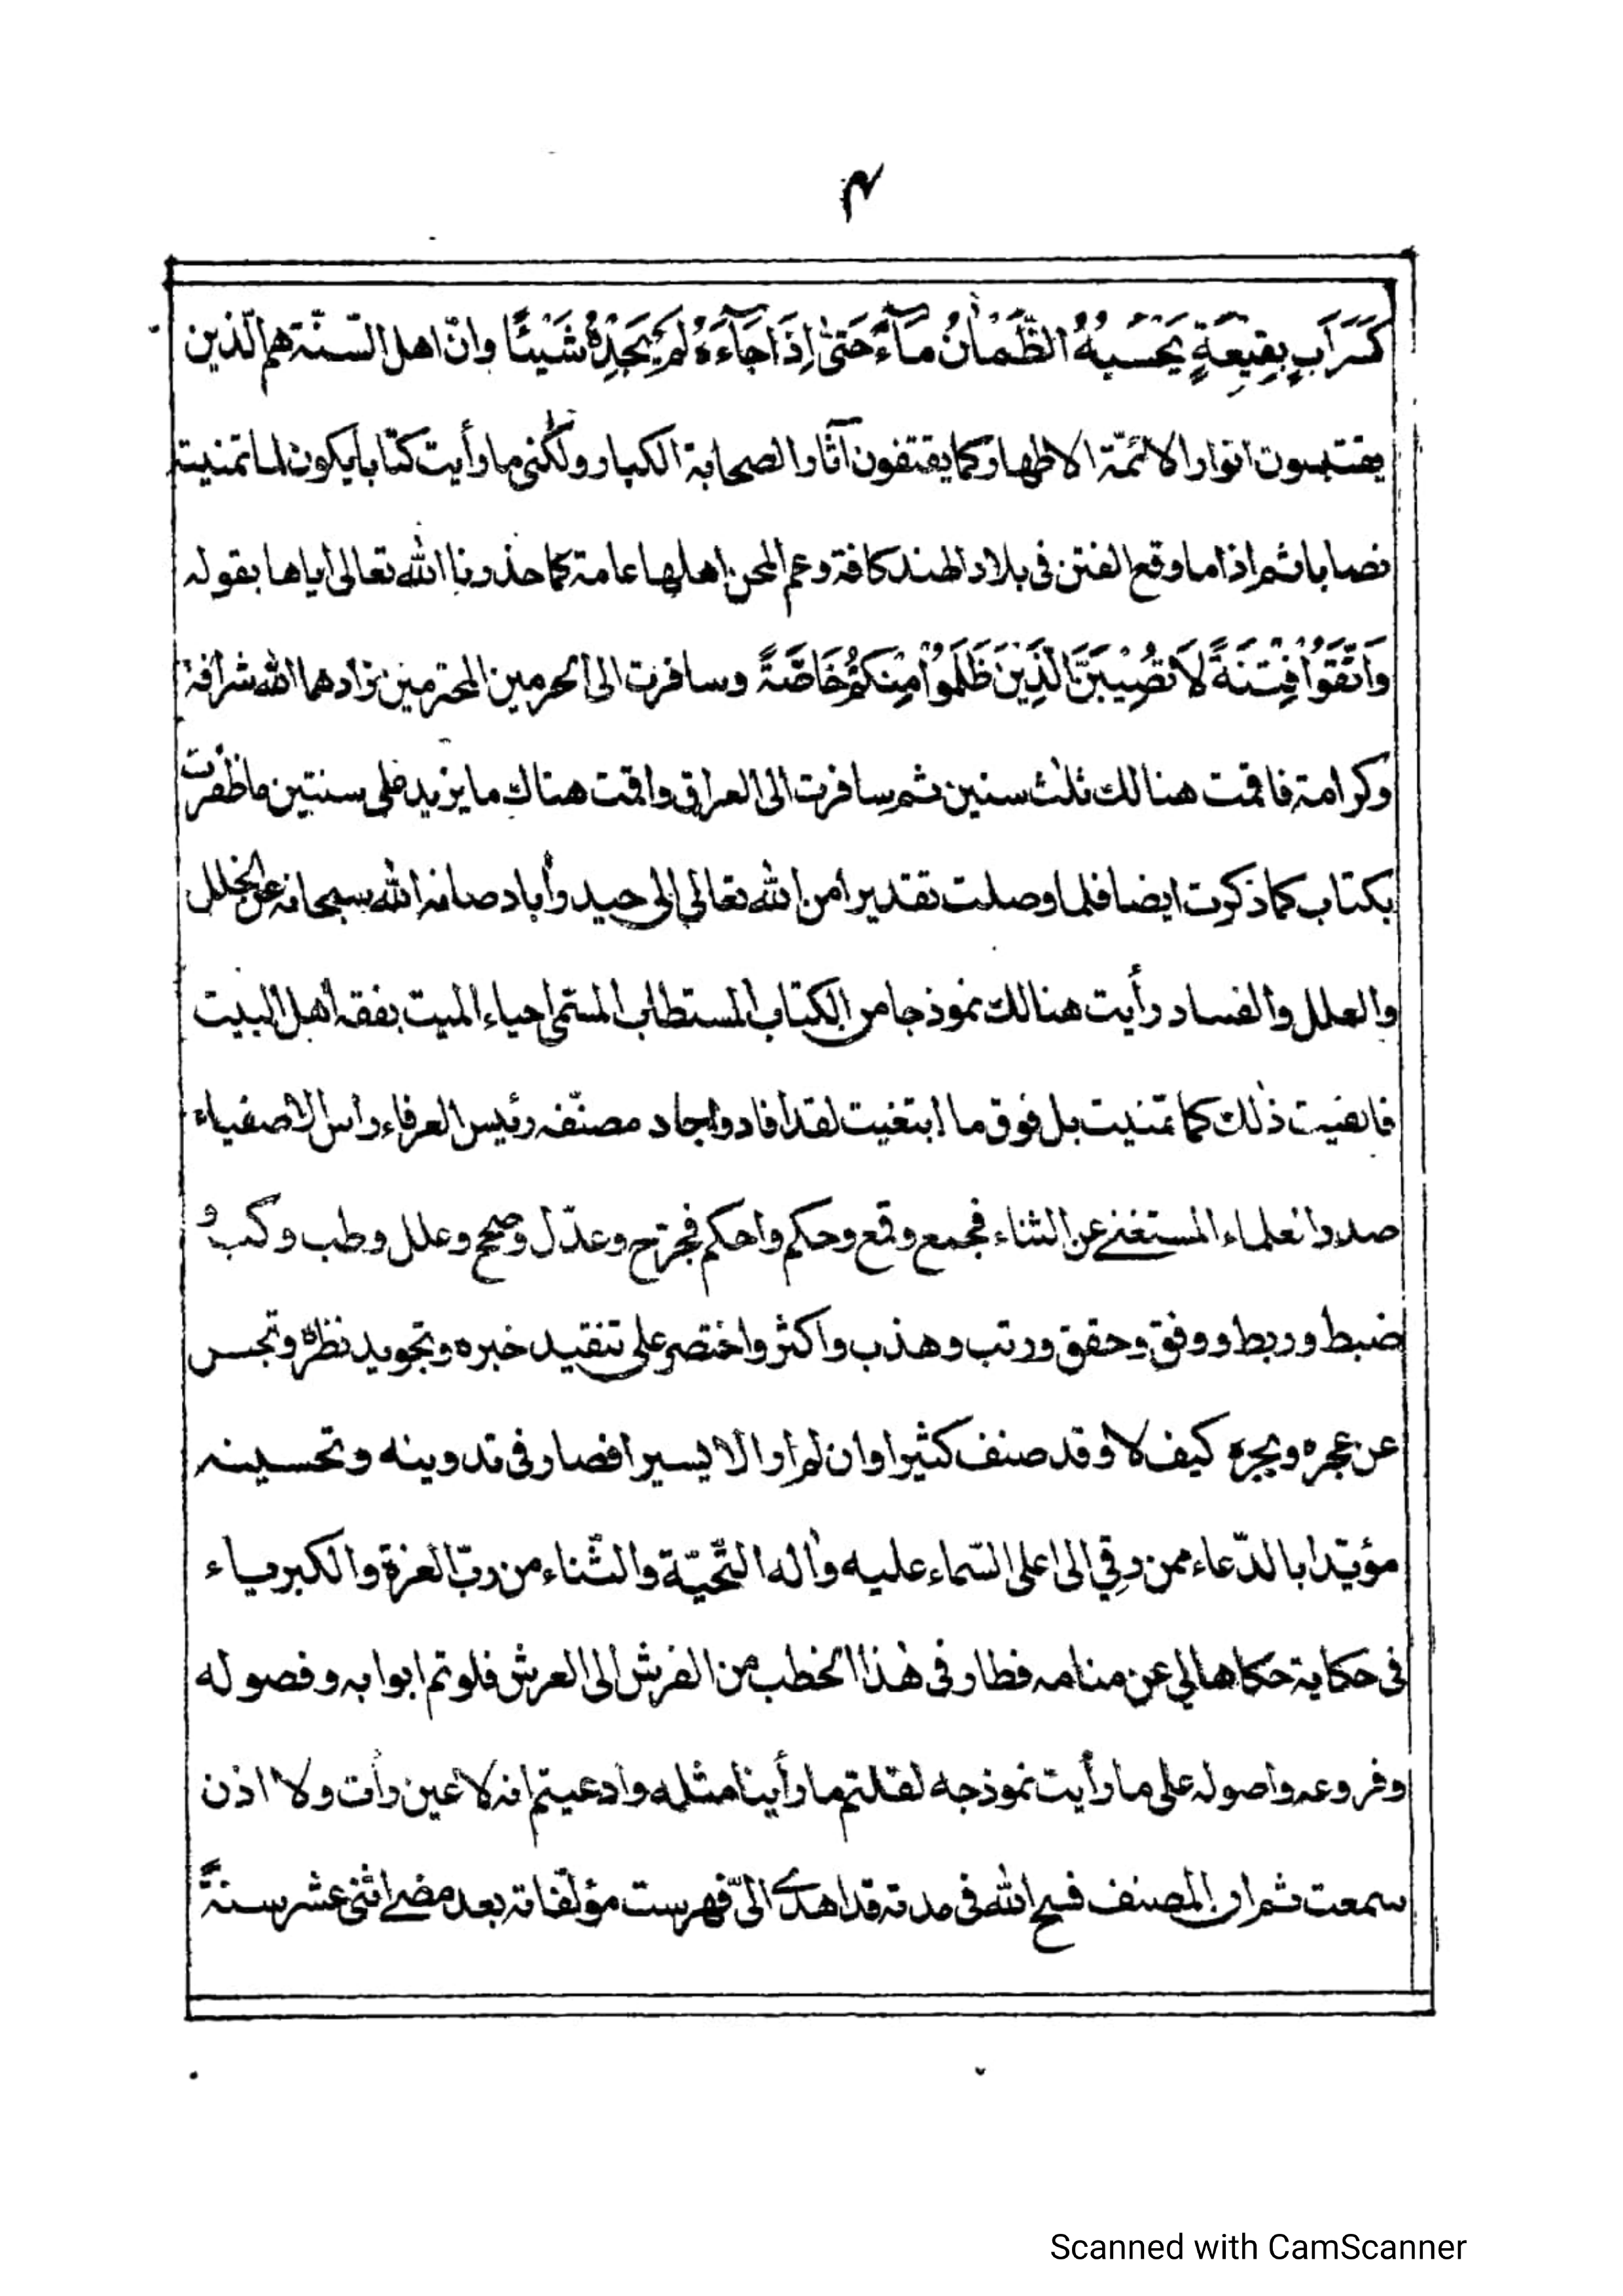 ۴
كَسَرَابٍ بِقِيعَةٍ يَحْسَبُهُ الظَّمْاٰنُ مَآءً حَتّٰى اِذَا جَآءَهُ لَمْ يَجِدْهُ شَيْئًا وانّ اهل السّنّة هم الّذين
يقتبسون انوار الائمّة الاطهار كما يقتفون آثار الصحابة الكبار ولٰكنى ما رأيت كتابا يكون لما تمنيت
نصابا ثم اذا ما وقع الفتن فى بلاد الهند كافة وعم المحن اهلها عامة كما حذرنا الله تعالى اياها بقوله
وَاتَّقُوْا فِتْنَةً لَا تُصِيْبَنَّ الَّذِيْنَ ظَلَمُوْا مِنْكُمْ خَاصَّةً وسافرت الى الحرمين المحترمين زادهما الله شرافة
وكرامة فاقمت هنالك ثلٰث سنين ثم سافرت الى العراق واقمت هناك ما يزيد على سنتين ما ظفرت
بكتاب كما ذكرت ايضا فلما وصلت تقديرا من الله تعالى الى حيدرأباد صانه الله سبحانه عن الخلل
والعلل والفساد رأيت هنالك نموذجا من الكتاب المستطاب المستمى احياء الميت بفقه اهل البيت
فالفيت ذلك كما تمنيت بل فوق ما ابتغيت لقد افاد واجاد مصنّفه رئيس العرفاء راس الاصفياء
صدر العلماء المستغنے عن الثناء فجمع وقمع وحكم واحكم فجرّح وعدّل وصحح وعلل وطب وكب و
ضبط وربط ووفق وحقق ورتب وهذب واكثر واختصر على تنقيد خبره وتجويد نظره وتجسس
عن عجره وبجره كيف لا وقد صنف كثيرا وان لم ار الا يسيرا فصار فى تدوينه وتحسينه
مؤيّدا بالدّعاء ممن رقي الى اعلى السّماء عليه واٰله التّحيّة والثّناء من ربّ العزة والكبرياء
فى حكاية حكاها لي عن منامه فطار فى هٰذا الخطب من الفرش الى العرش فلو تم ابوابه وفصوله
وفروعه واصوله على ما رأيت نموذجه لقلتم ما رأينا مثله وادعيتم انه لا عين رأت ولا اذن
سمعت ثم ان المصنف فسح الله فى مدته قد اهدے الىّ فهرست مؤلفاته بعد مضے اثنى عشر سنةً
Scanned with CamScanner